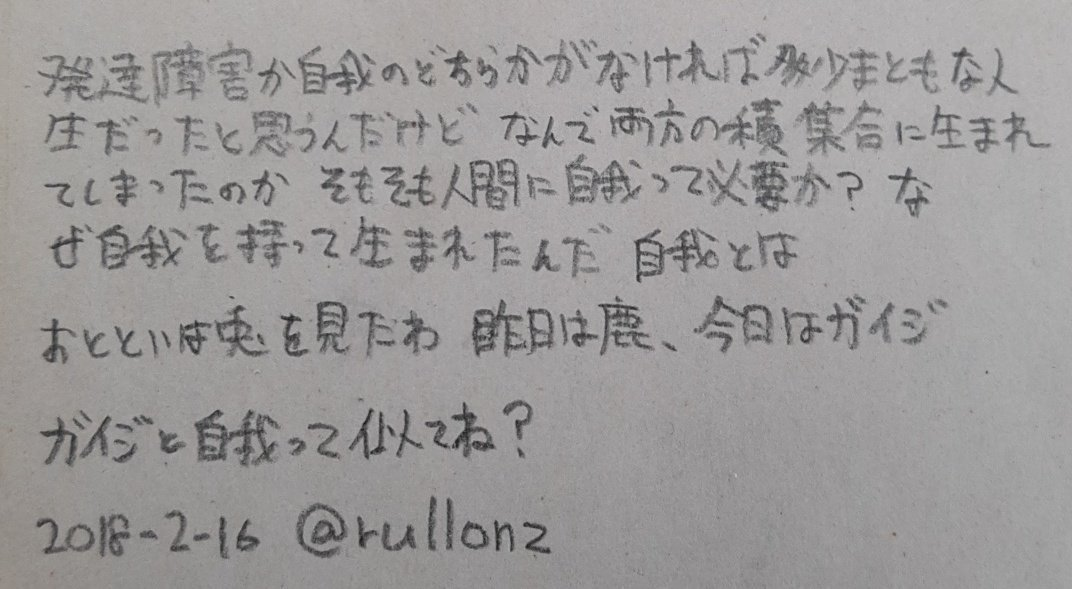 発達障害か自我のどちらかがなければ多少まともな人
生だったと思うんだけど なんで両方の積集合に生まれ
てしまったのか そもそも人間に自我って必要か? な
ぜ自我を持って生まれたんだ 自我とは
おとといは兎を見たわ 昨日は鹿、今日はガイジ
ガイジと自我って似てね?
2018-2-16 @rullonz